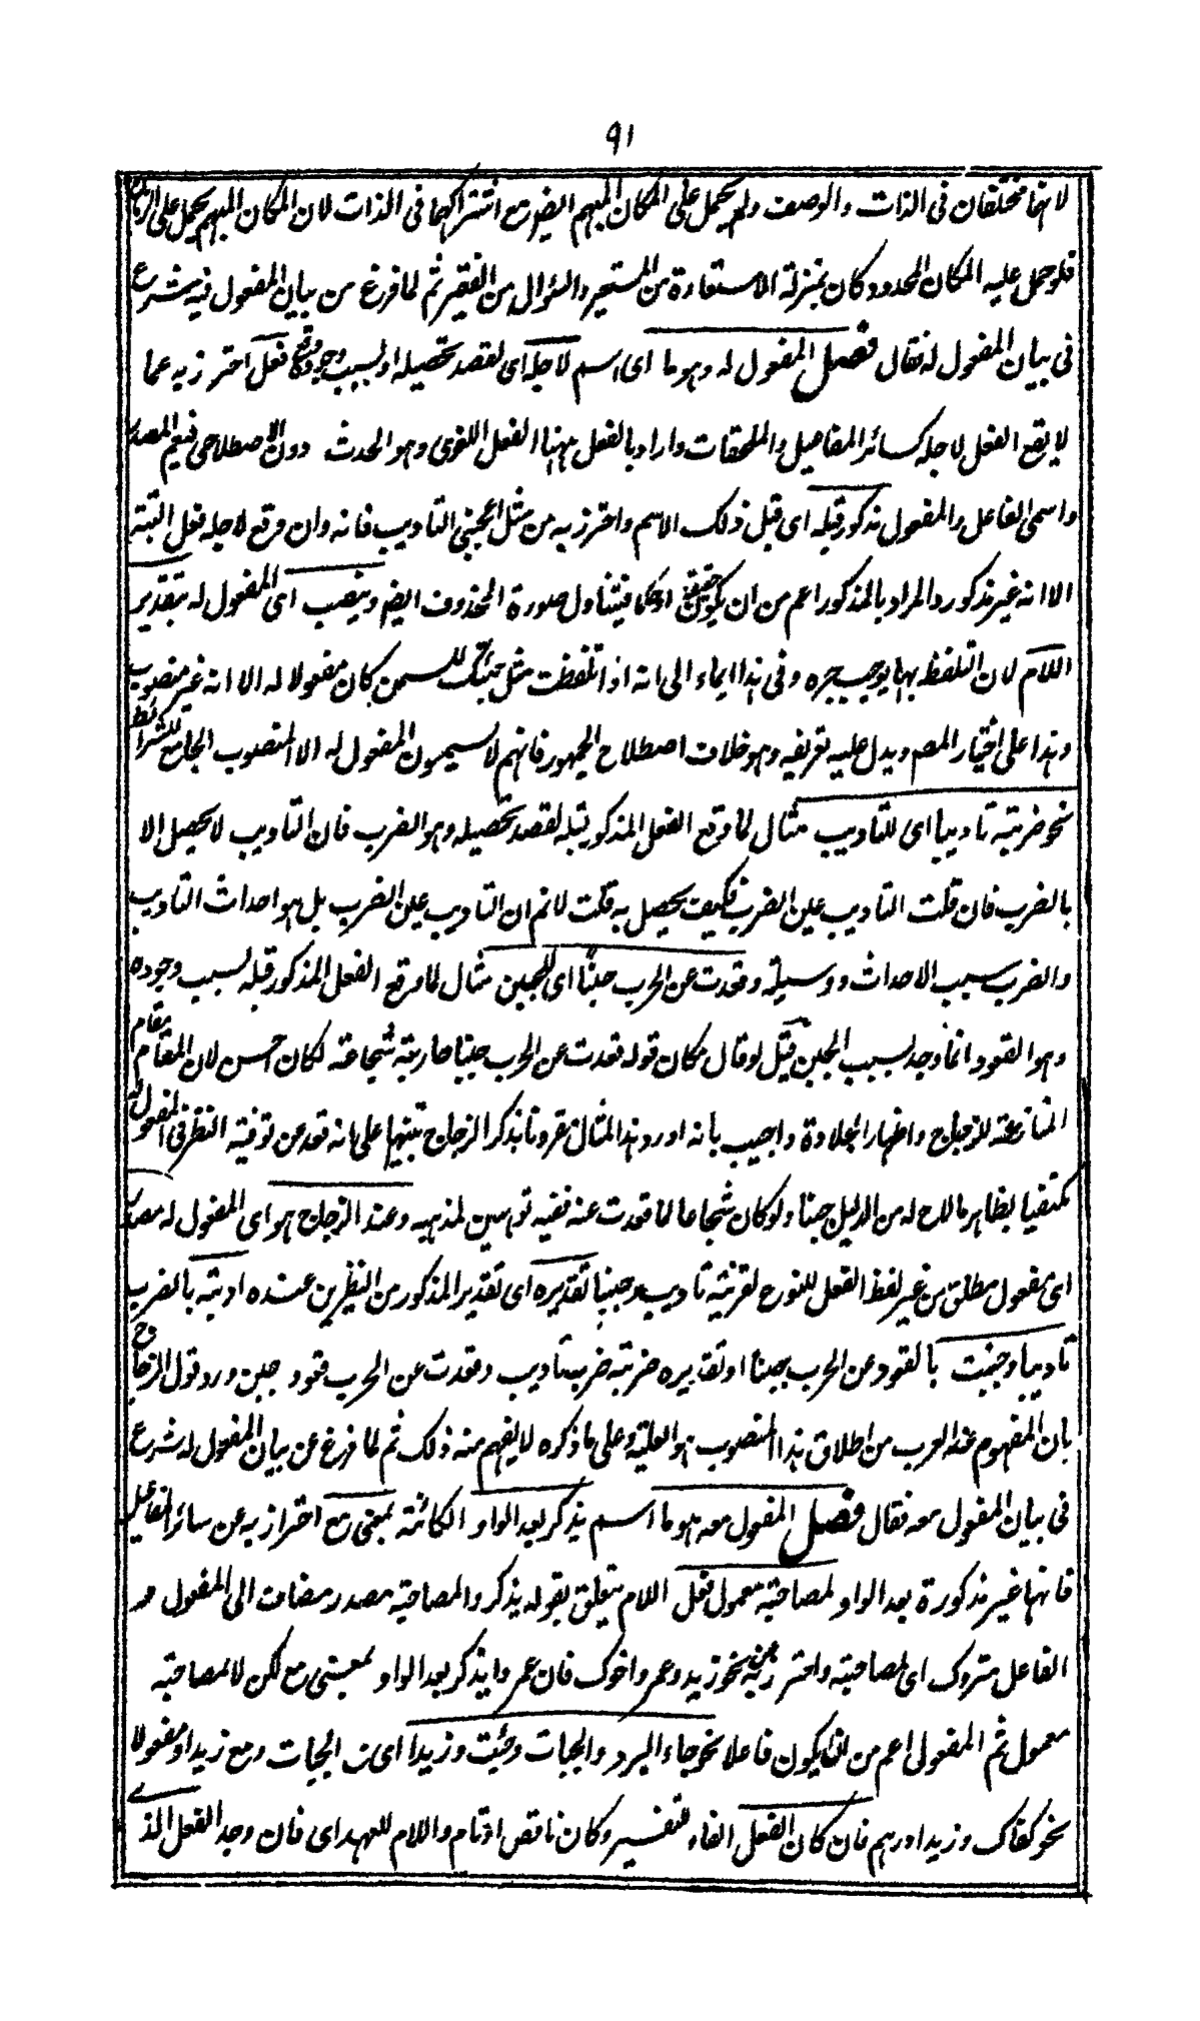 ٩١
لانهما مختلفان فى الذات والوصف ولم يحمل على المكان المبهم ايضا مع اشتراكهما فى الذات لان المكان المبهم يحمل على الزمان
فلو حمل عليه المكان المحدود كان بمنزلة الاستعارة من المستعير والسؤال من الفقير ثم لما فرغ من بيان المفعول فيه شرع
فى بيان المفعول له فقال فصل المفعول له وهو ما اى اسم لاجله اى لقصد تحصيله او لسبب وجوده وقع فعل احترز به عما
لا يقع الفعل لاجله كسائر المفاعيل والملحقات واراد بالفعل ههنا الفعل اللغوى وهو الحدث دون الاصطلاحى فيعم المصدر
واسمى الفاعل والمفعول مذكور قبله اى قبل ذلك الاسم واحترز به من مثل اعجبنى التاديب فانه وان وقع لاجله فعل البتة
الا انه غير مذكور والمراد بالمذكور اعم من ان يكون حقيقة او حكما فيتناول صورة المحذوف ايضا وينصب اى المفعول له بتقدير
اللام لان التلفظ بها يوجب جره وفى هذا ايماء الى انه اذا تلفظت مثل جئتك للسمن كان مفعولا له الا انه غير منصوب
وهذا على اختيار المصـ ويدل عليه تعريفه وهو خلاف اصطلاح الجمهور فانهم لا يسمون المفعول له الا المنصوب الجامع للشرائط
نحو ضربته تاديبا اى للتاديب مثال لما وقع الفعل المذكور قبله لقصد تحصيله وهو الضرب فان التاديب لا يحصل الا
بالضرب فان قلت التاديب عين الضرب فكيف يحصل به قلت لا نم ان التاديب عين الضرب بل هو احداث التاديب
والضرب سبب الاحداث ووسيلة وقعدت عن الحرب جبنا اى للجبن مثال لما وقع الفعل المذكور قبله لسبب وجوده
وهو القعود انما وجد لسبب الجبن قيل لو قال مكان قوله قعدت عن الحرب جبنا حاربته شجاعته لكان احسن لان المقام مقام
المنازعة للزجاج واظهار الجلادة واجيب بانه اورد هذا المثال مقرونا بذكر الزجاج تنبيها على انه قعد عن توفية النظر فى المفعول له
مكتفيا بظاهر ما لاح له من الدليل جبنا ولو كان شجاعا لما قعدت عنه ففيه توهين لمذهبه وعند الزجاج هو اى المفعول له مصدر
اى مفعول مطلق من غير لفظ الفعل للنوع لقرينة تاديب وجبنا تقديره اى تقدير المذكور من النظيرين عنده ادبته بالضرب
تاديبا وجبنت بالقعود عن الحرب جبنا او تقديره ضربته ضرب تاديب وقعدت عن الحرب قعود جبن ورد قول الزجاج
بان المفهوم عند العرب من اطلاق هذا المنصوب هو العلية وعلى ما ذكره لا يفهم منه ذلك ثم لما فرغ عن بيان المفعول له شرع
فى بيان المفعول معه فقال فصل المفعول معه هو ما اسم يذكر بعد الواو الكائنة بمعنى مع احترز به عن سائر المفاعيل
فانها غير مذكورة بعد الواو لمصاحبة معمول فعل اللام متعلق بقوله يذكر والمصاحبة مصدر مضاف الى المفعول و
الفاعل متروك اى لمصاحبته واحترز به عن نحو زيد وعمرو اخوك فان عمروا يذكر بعد الواو بمعنى مع لكن لا لمصاحبة
معمول ثم المفعول اعم من ان يكون فاعلا نحو جاء البرد والجبات وجئت وزيدا اى مع الجبات ومع زيد او مفعولا
نحو كفاك وزيدا درهم فان كان الفعل الفاء للتفسير وكان ناقص او تام واللام للعهد اى فان وجد الفعل الذى